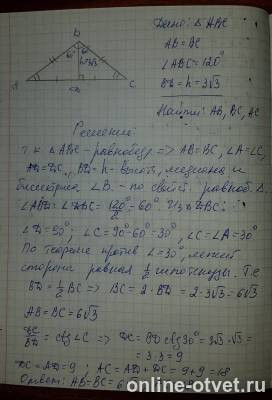 Дано: △ ABC
AB = BC
∠ABC = 120°
BD = h = 3√3
Найти: AB, BC, AC
B
60° 60°
h=3√3
A
D
C
Решение:
т.к △ ABC - равнобедр => AB=BC, ∠A=∠C,
AD=DC, BD=h - высота, медиана и
биссектриса ∠B. - по свойст. равноб. △
∠ABD=∠DBC= 120°/2 = 60°. Из △DBC:
∠D=90°; ∠C=90°-60°=30°, ∠C=∠A=30°
По теореме против ∠=30°, лежит
сторона равная 1/2 гипотенузы. Т.е
BD = 1/2 BC => BC = 2·BD = 2·3√3 = 6√3
AB=BC=6√3
DC/BD = ctg∠C => DC = BD ctg30° = 3√3·√3 =
= 3·3 = 9
DC = AD = 9; AC = AD + DC = 9+9 = 18
Ответ: AB=BC= 6
online-otvet.ru